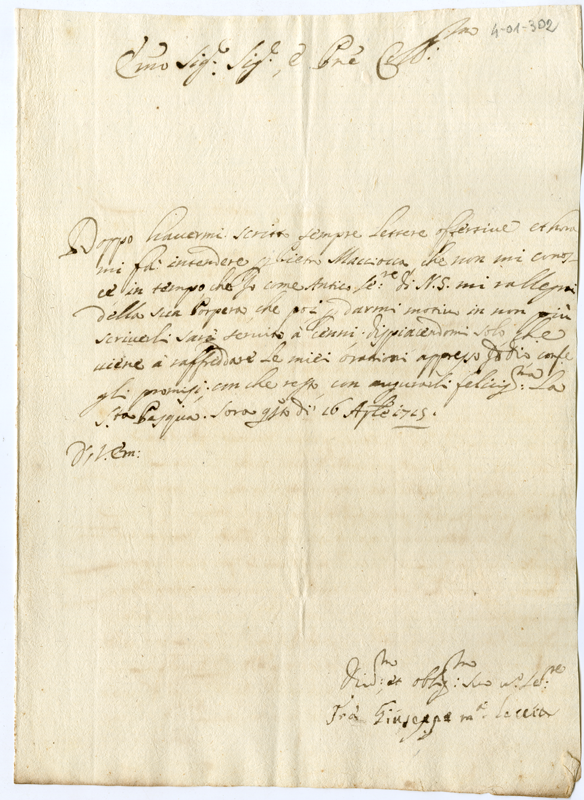 4-01-302
Emo Sig.r Sig.r, è Pne Coll.mo
Doppo havermi scritto sempre lettere offertive et hora
mi fà intendere Pietro Macciocca che non mi conos-
ce in tempo che Io come Antico se.re di N.S. mi rallegrai
della sua Porpora che poi darmi motivo in non più
scriverli sarà servito à cenni, dispiacendomi solo che
viene à raffreddare le miei orationi appresso Iddio
gli promisi, con che resto con augurarli felicis.ma La
S.ta Pasqua. Sora q.sto dì 16 Aple 1715.
D.V. Em:
Div.mo et oblig.mo Suo se.re
Frà Giuseppe